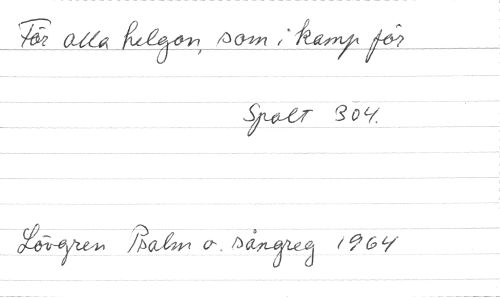 För alla helgon, som i kamp för
Spalt 304.
Lövgren Psalm o. sångreg 1964